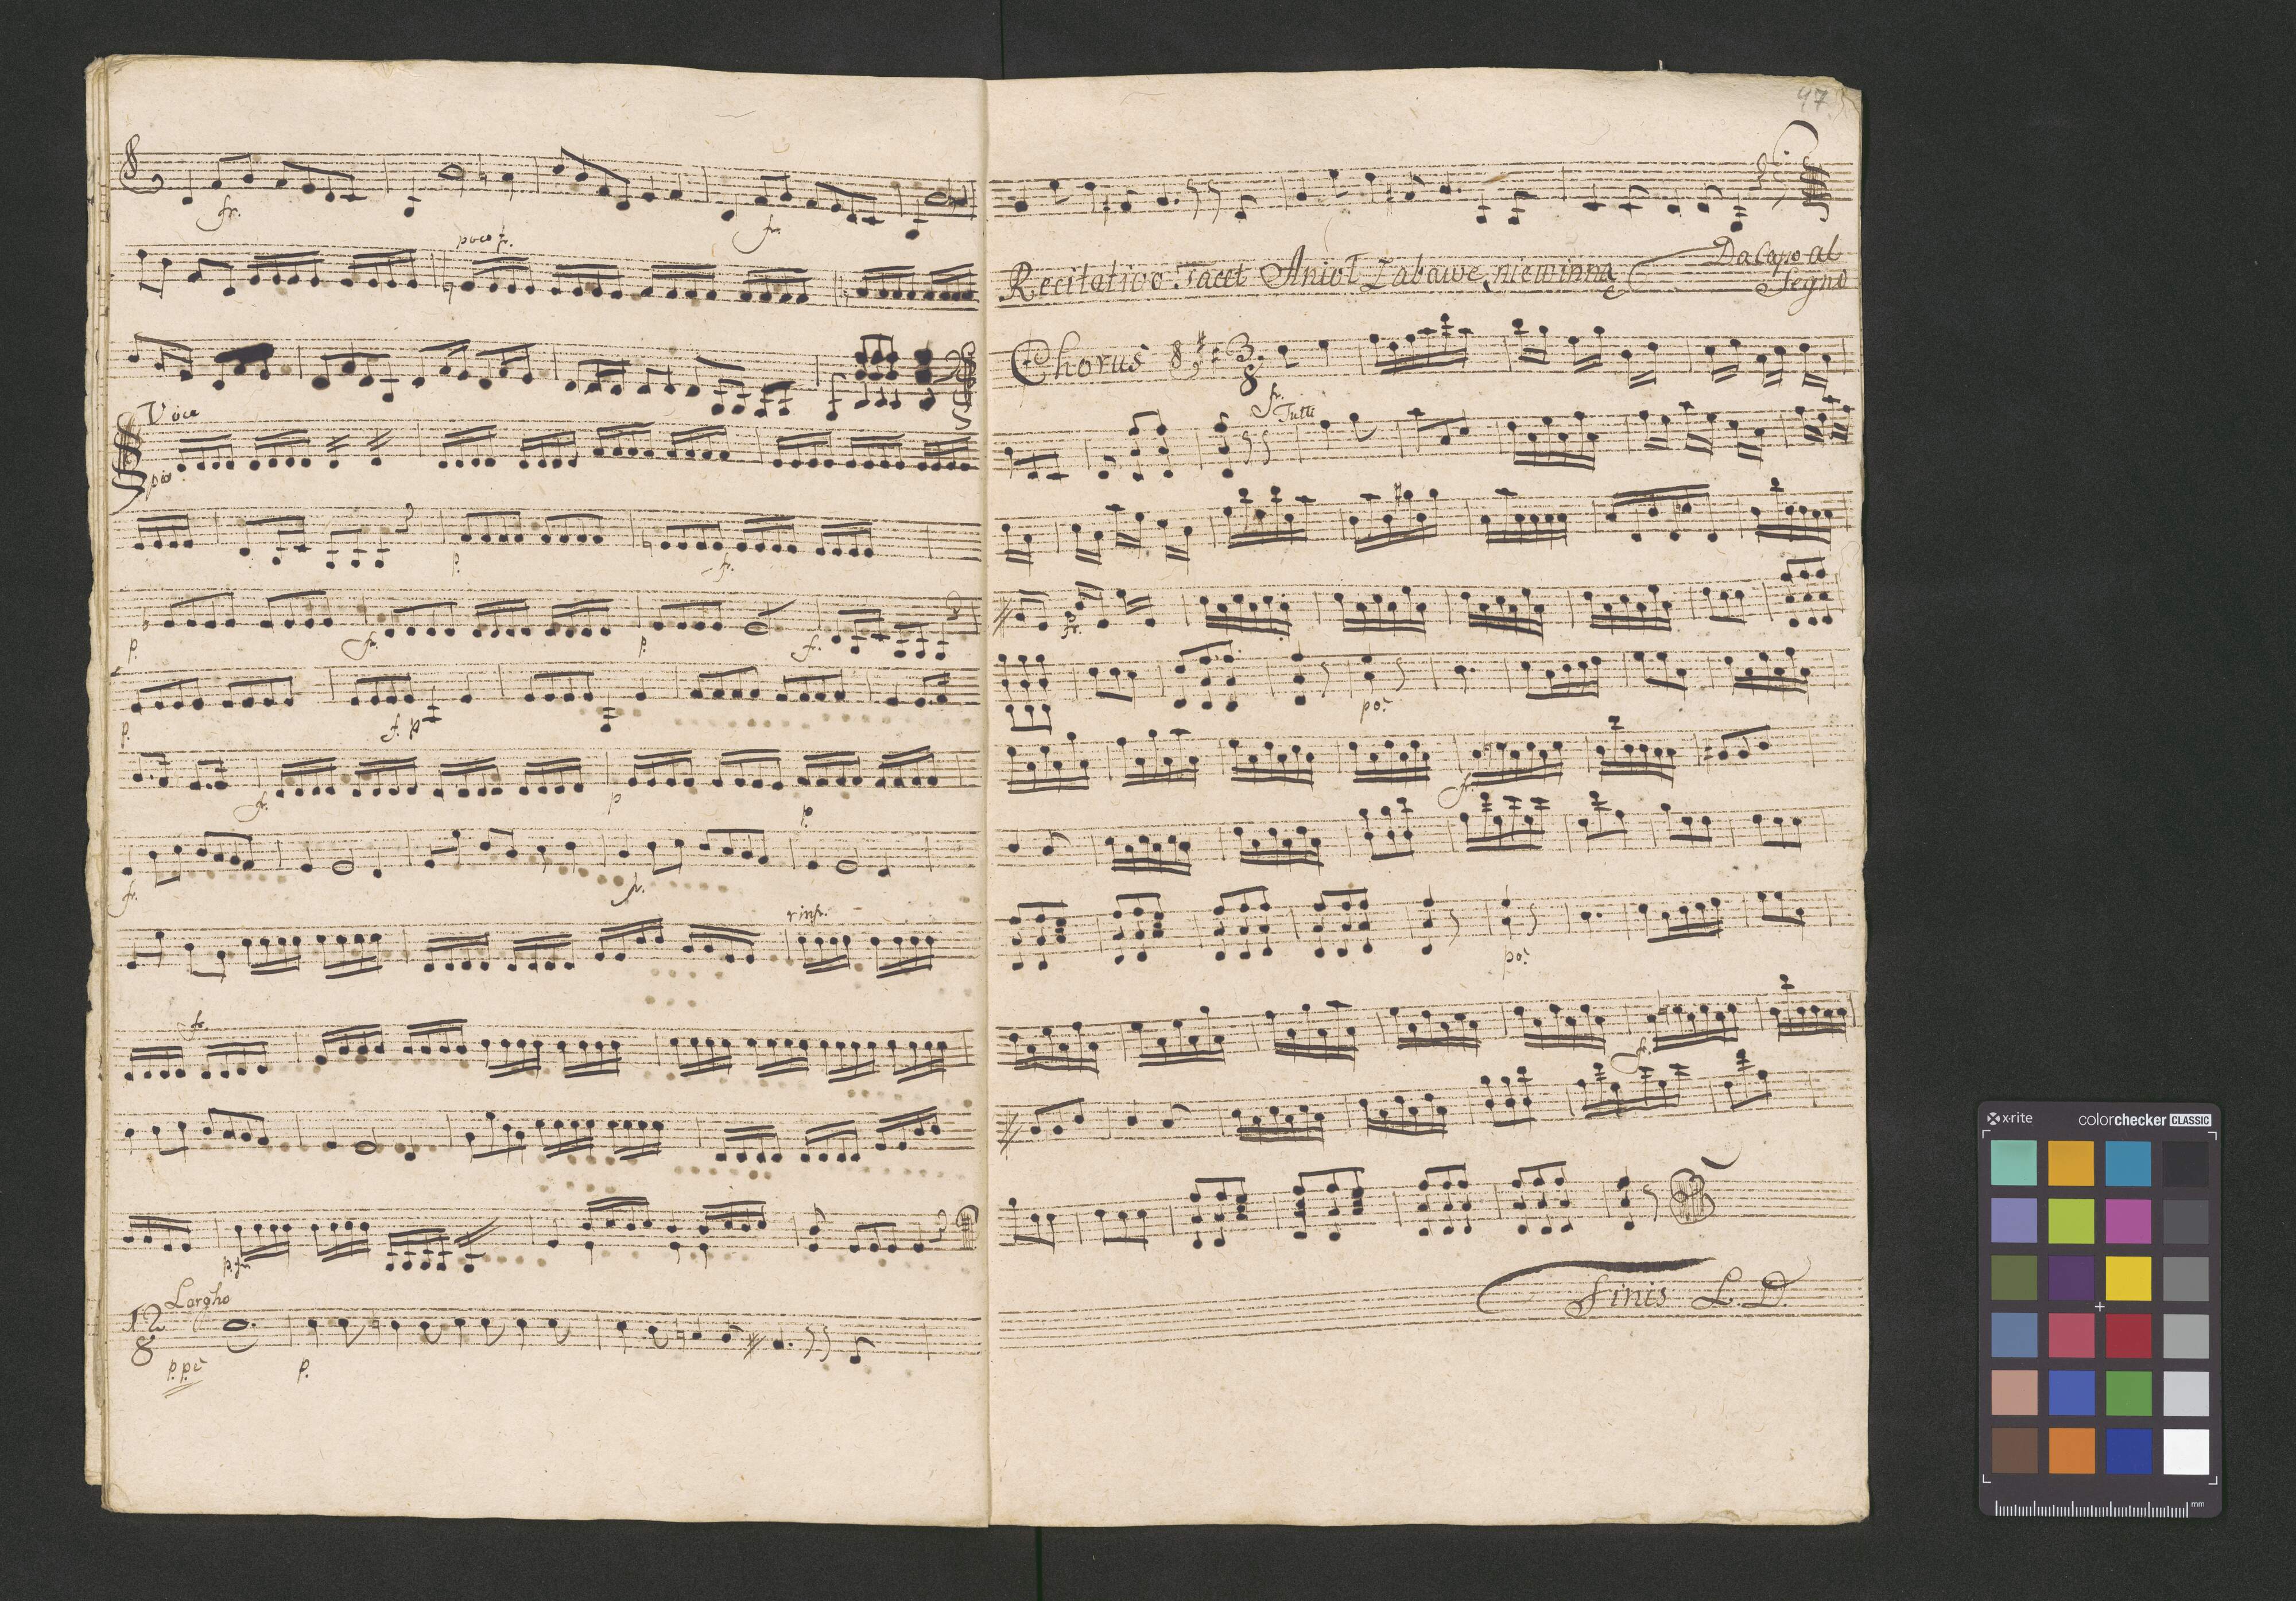 fr.
fr.
poco fr.
Voce
pio.
p.
fr.
p.
fr.
p.
fr.
p.
f. p
fr.
p
p
fr.
fr.
rinf.
fr.
p. fr
Largho
12
8
p.pe
p.
47
Recitativo Tacet Anioł Zabawe niewinną
Da Capo al
Segno
Chorus 3
8
fr.
Tutti
fr.
po:
f.
po:
fr.
Finis L. D.
x-rite
colorchecker CLASSIC
mm